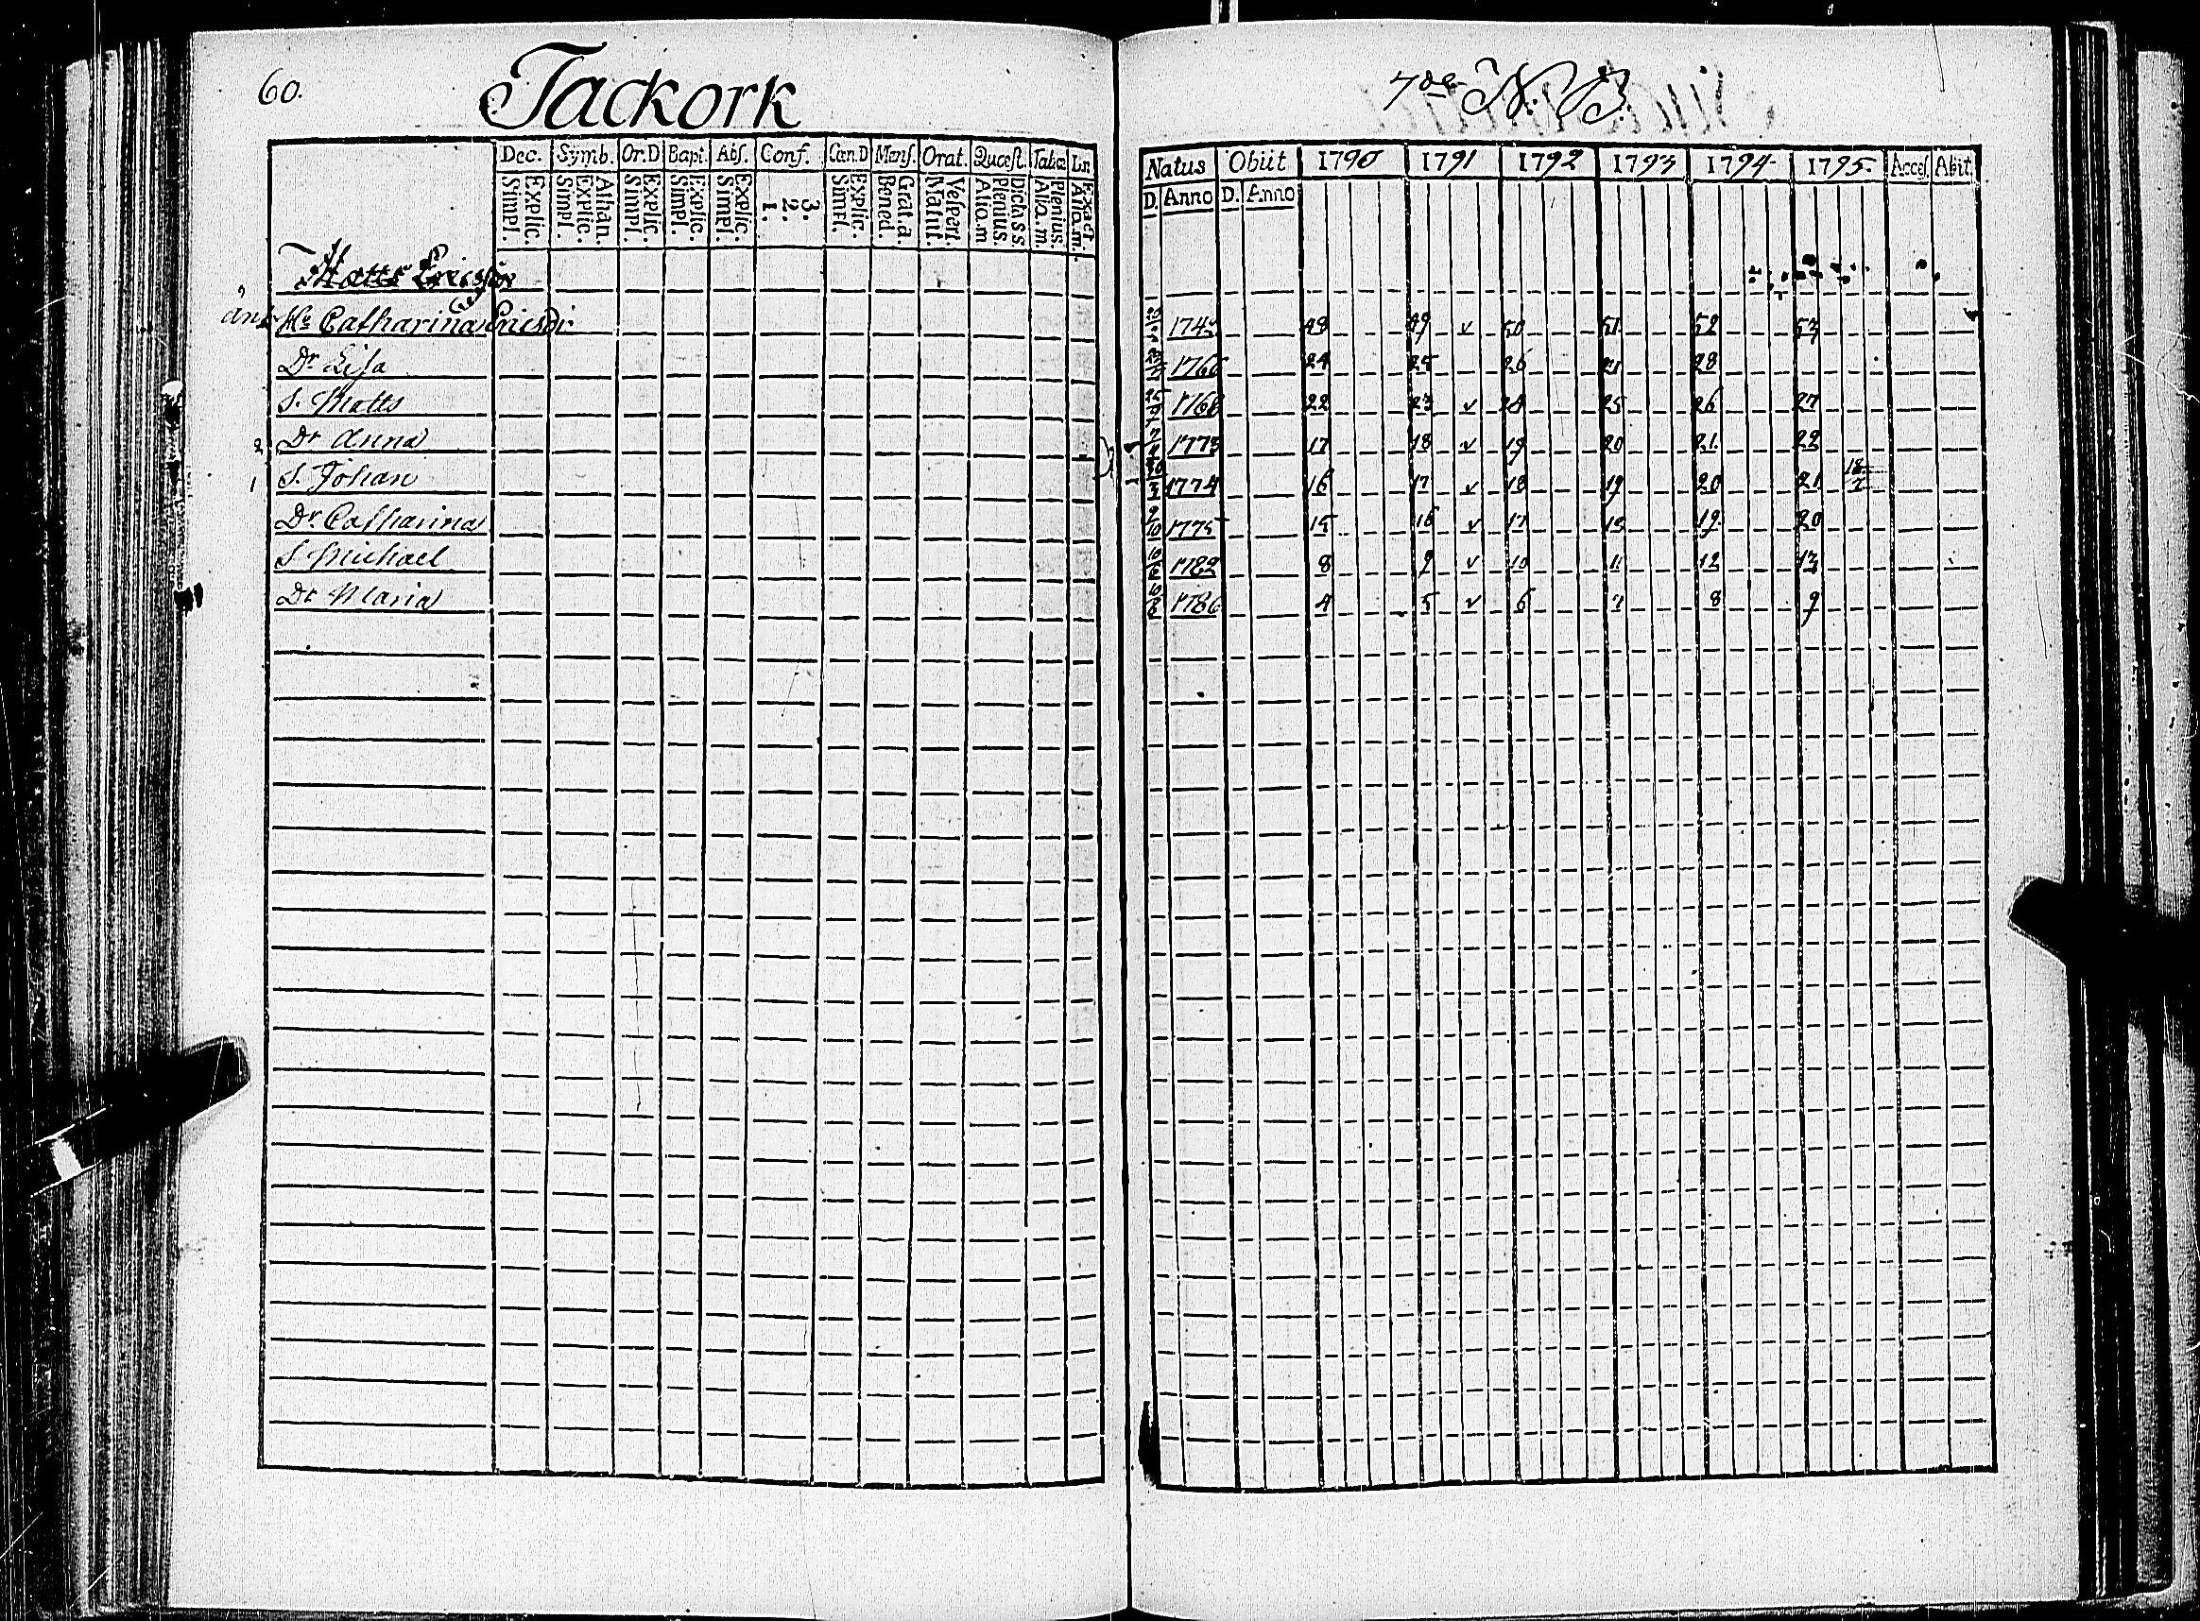 60. Jackork
Dec. Symb. Or.D Bapt. Abs. Conf. Cœn.D Mens. Orat. Quœst. Tabœ Ln.
Simpl. Explic. Simpl. Explic. Athan. Simpl. Explic. Simpl. Explic. Simpl. Explic. 1. 2. 3. Simpl. Explic. Bened. Grat.a. Matut. Vespert. Alio.m Plenius. Dicta s s Alio.m. Plenius. Alio.m. Exact
Matts Ericsson
änk. Hu Catharina Ericsdr
Dr Lisa
S. Matts
2 Dr Anna
1 S. Johan
Dr. Catharina
S Michael
Dr Maria
7de N. B.
Natus Obiit 1790 1791 1792 1793 1794 1795. Acces. Abit.
D. Anno D. Anno
174 48 49 v 50 51 52 53
1766 24 25 26 27 28
1768 22 23 v 24 25 26 27
1773 17 18 v 19 20 21 22
1774 16 17 v 18 19 20 21
2/10 1775 15 16 v 17 18 19 20
1782 8 9 v 10 11 12 13
1786 4 5 v 6 7 8 9